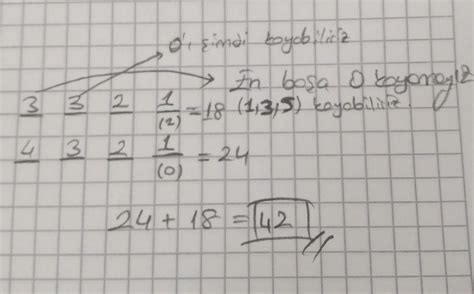 0'ı şimdi koyabiliriz
En başa 0 koyamayız
3 3 2 1 = 18 (1,3,5) koyabiliriz.
(2)
4 3 2 1 = 24
(0)
24 + 18 = 42